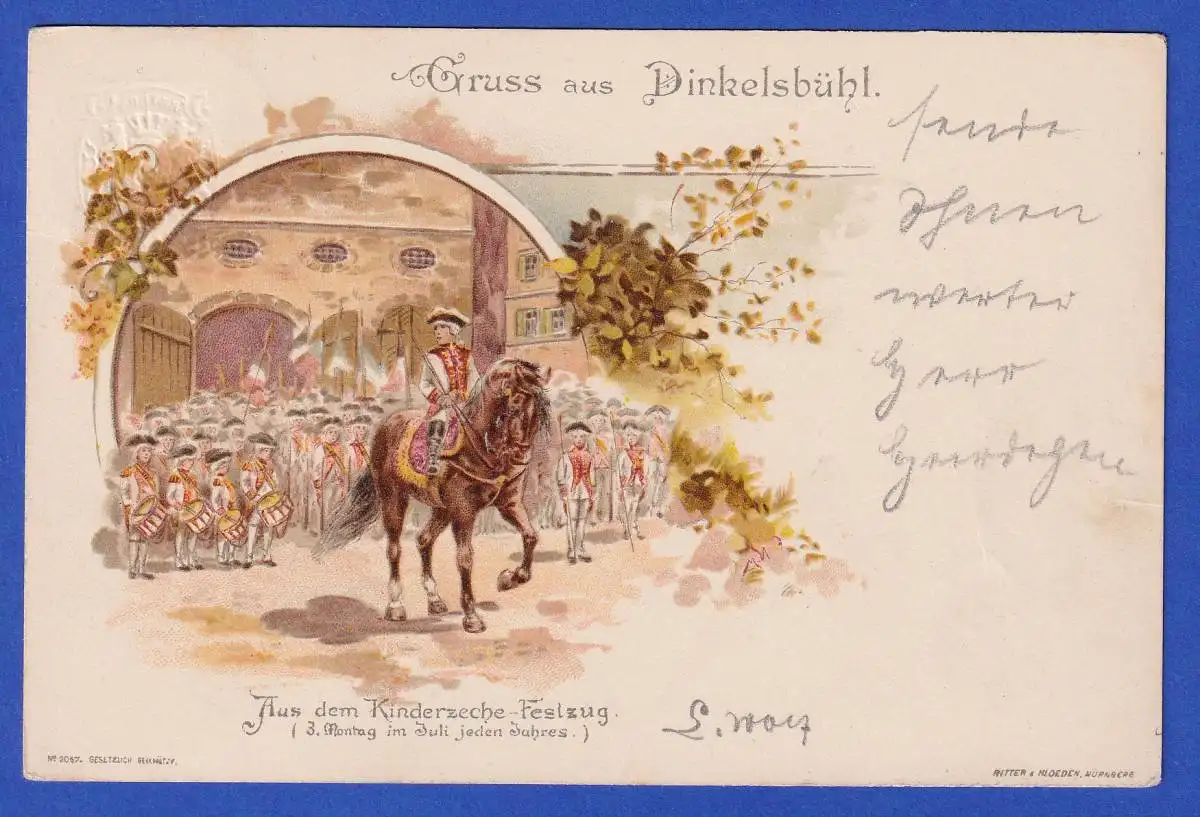 Gruss aus Dinkelsbühl.
sende
Ihnen
werter
Herr
Aus dem Kinderzeche-Festzug.
( 3. Montag im Juli jeden Jahres. )
L. Wolf
No 2067. GESETZLICH GESCHÜTZT.
RITTER & KLOEDEN, NÜRNBERG